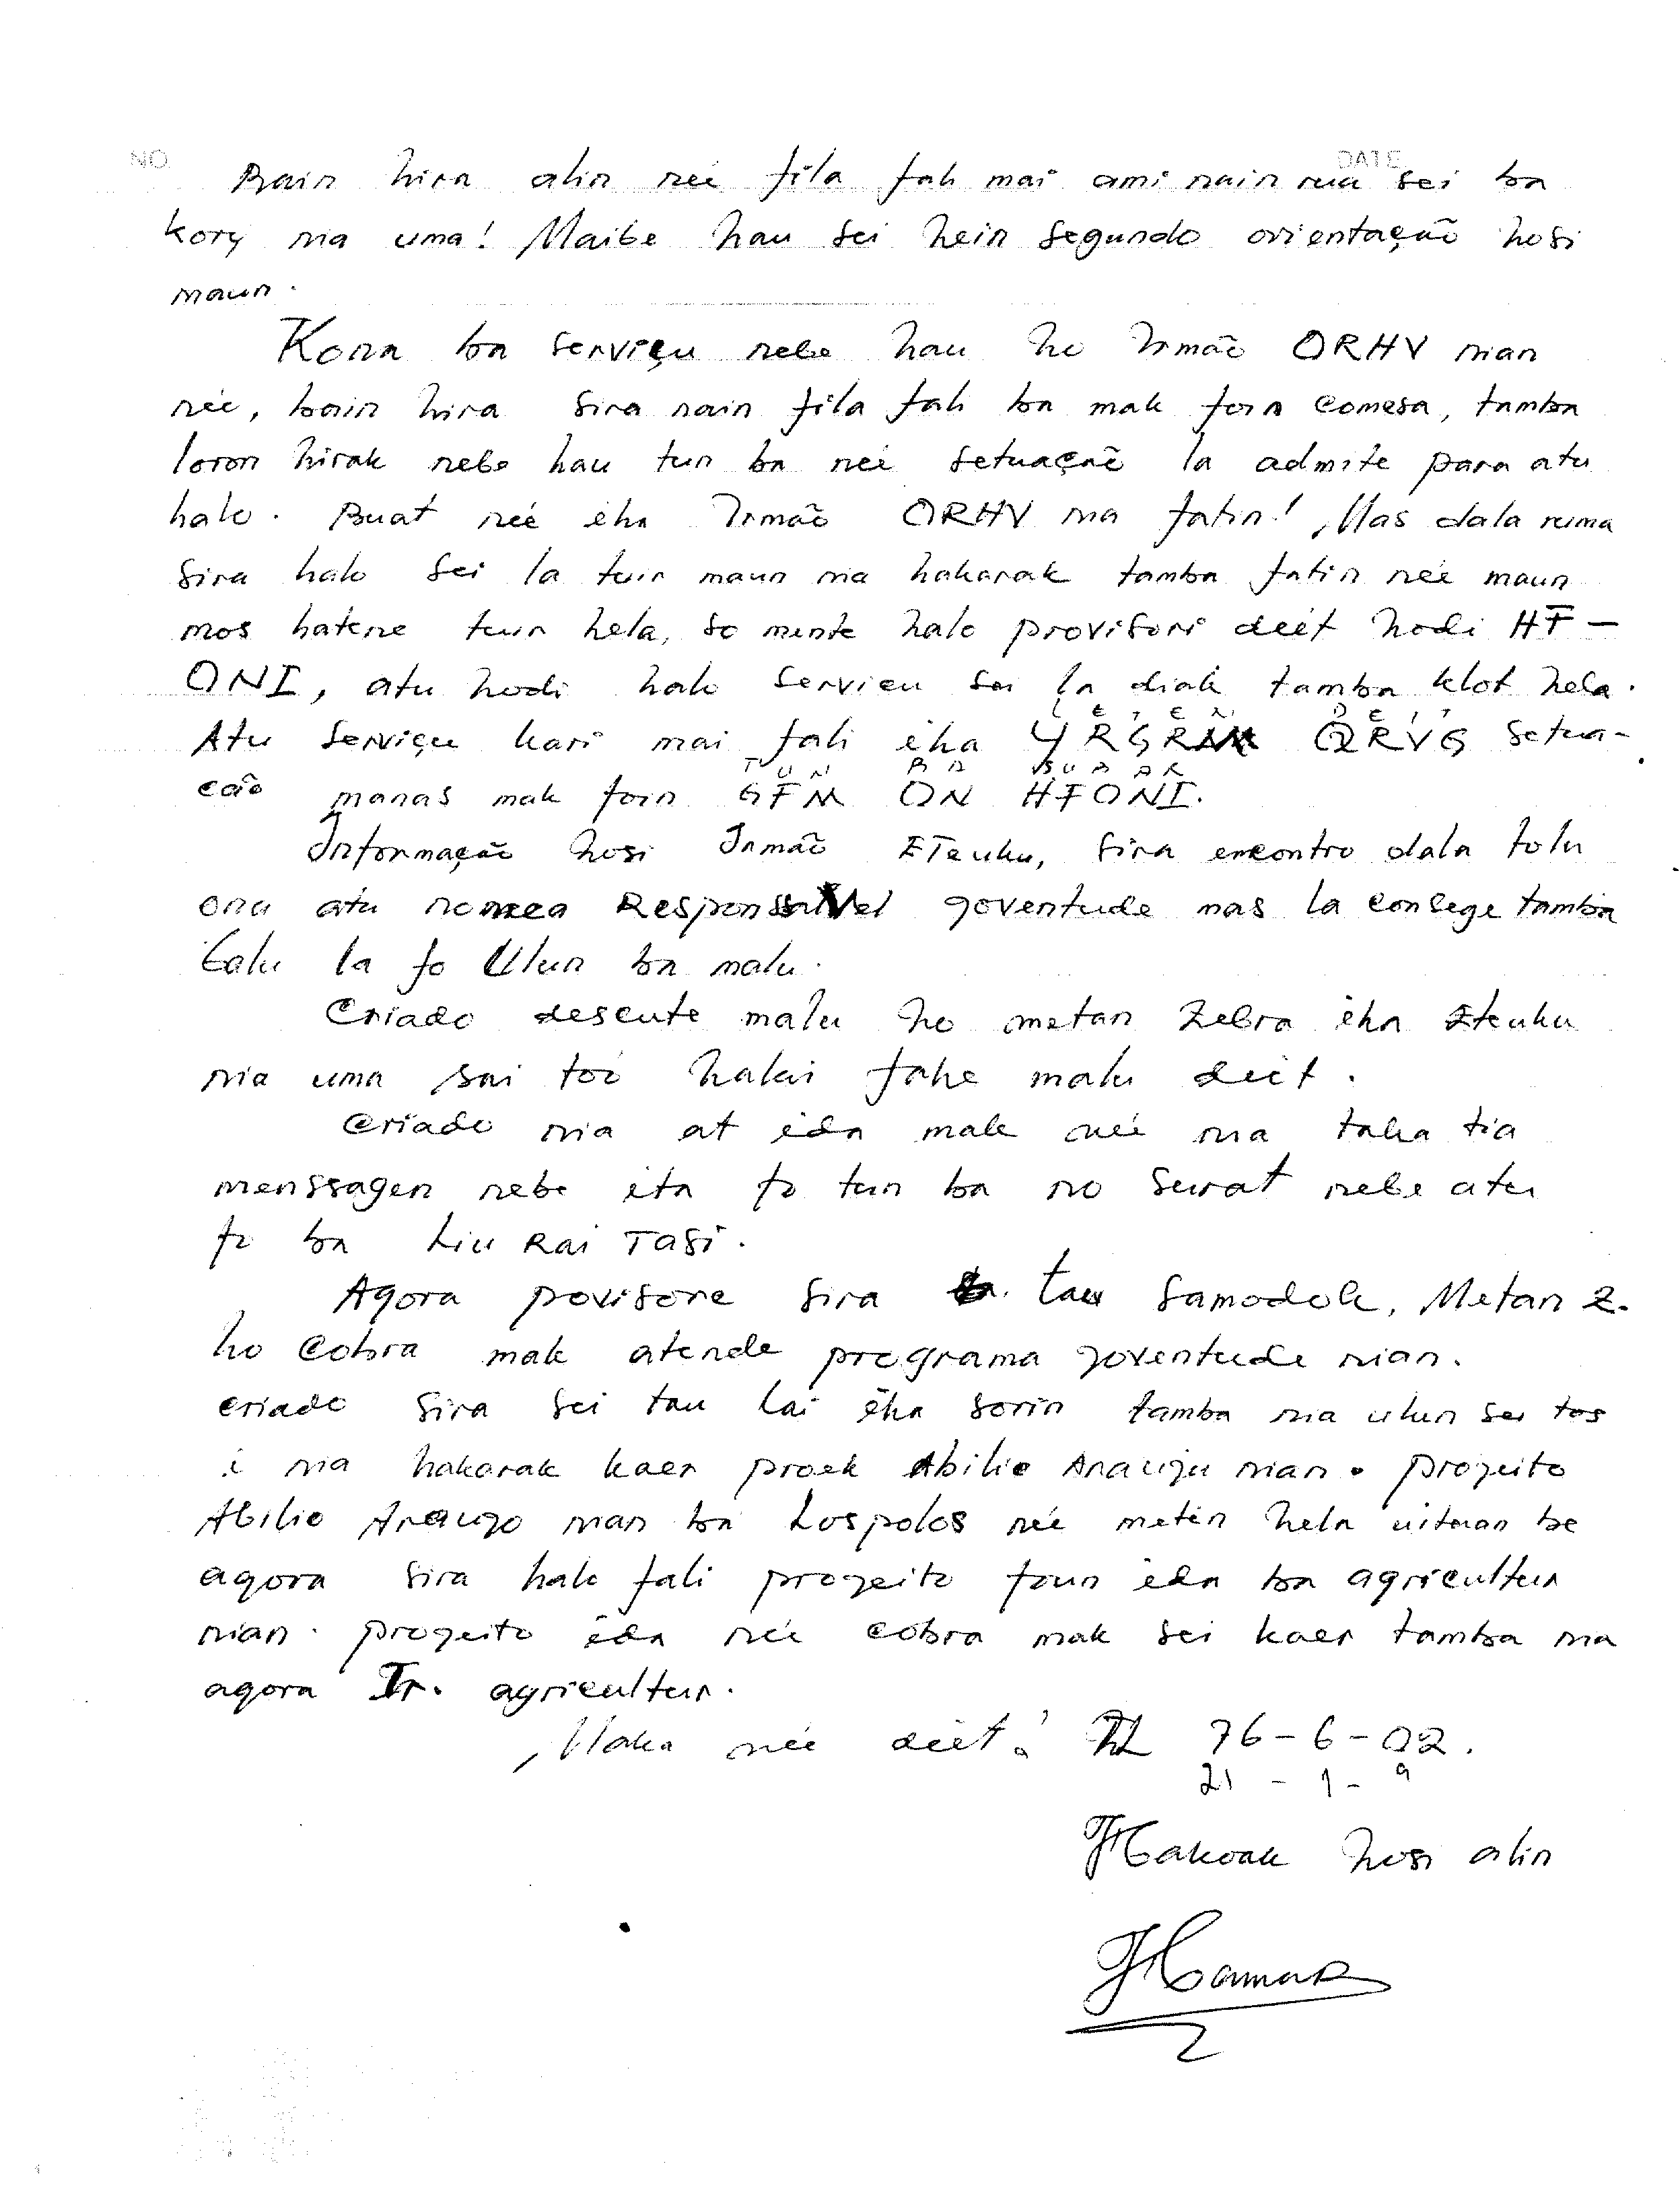 NO. DATE
Bain hira alin neé fila fali mai ami nain rua sei ba
kory nia uma! Maibe hau sei hein segundo orientação hosi
maun.
Kona ba serviçu nebe hau ho Irmão ORHV nian
neé, bain hira sira nain fila fali ba mak foin comesa, tamba
loron hirak nebe hau tun ba neé setuaçaõ la admite para atu
halo. Buat neé éha Irmão ORHV nia fatin! Mas dala ruma
sira halo sei la tuir maun nia hakarak tamba fatin neé maun
mos hatene tuir hela, so mente halo provisori deét hodi HF-
ONI, atu hodi halo servicu sei la diak tamba klot hela.
Atu serviçu kari mai fali éha YRGRM QRVG setua-
L E T E N D E I T
cão manas mak foin GFM ON HFONI.
T U N B A SUBAR
Informação hosi Irmão ETeuku, sira encontro dala tolu
ona atu nomea Responsavel joventude mas la consege tamba
Galu la fo Ulun ba malu.
Criado descute malu ho metan Zebra éha Eteuku
nia uma sai toó halai fahe malu deét.
Criado nia at éda mak neé nia taka tia
menssagen nebe ita fo tun ba no surat nebe atu
fo ba Liu Rai Tasi.
Agora povisore sira tau Samodok, Metan Z.
ho Cobra mak atende programa joventude nian.
criado sira sei tau lai éha sorin tamba nia ulun sei tos
i nia hakarak kaer proek Abilio Arauju nian. projeito
Abilio Araujo nian ba Lospolos neé metin hela uituan be
agora sira halo fali projeito foun éda ba agricultur
nian. projeito éda neé cobra mak sei kaer tamba nia
agora Ir. agricultur.
Maka neé deét! 76-6-02.
21 - 1 - 9
Hakoak hosi alin
Hamar